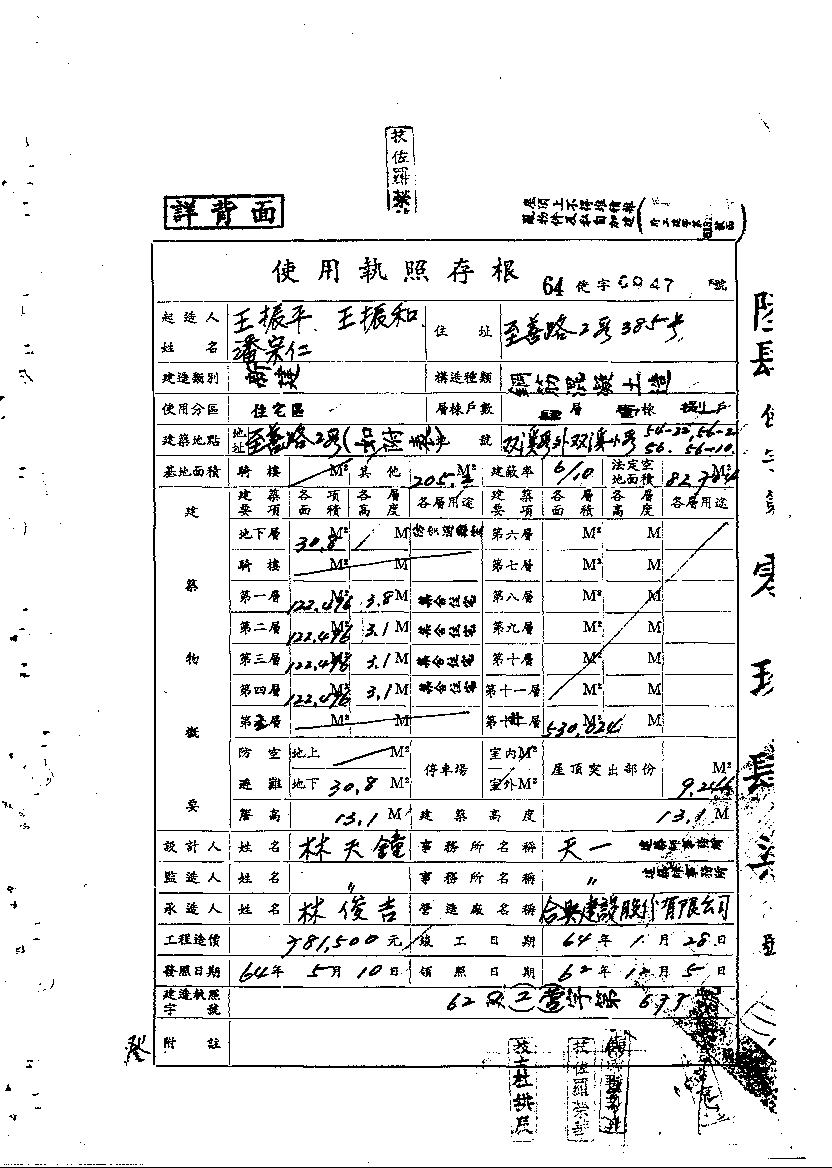 技佐羅榮
詳背面
屋頂上不得堆積雜
使用執照存根
64 使字 0047 號
起造人姓名 王振平、王振和、潘宗仁 住址 至善路2段385号
建造類別 新建 構造種類 鋼筋混凝土造
使用分區 住宅區 層棟戶數 層 棟 戶
建築地點 地址 至善路2段 號 双溪段外双溪小段 56-22, 56-2 56. 56-10
基地面積 騎樓 M² 其他 205.2 M² 建蔽率 6/10 法定空地面積 M²
建築物概要
建築要項 各項面積 各層高度 各層用途 建築要項 各層面積 各層高度 各層用途
地下層 30.8 M² M 第六層 M² M
騎樓 M² M 第七層 M² M
第一層 122.496 M² 3.8 M 集合住宅 第八層 M² M
第二層 122.496 M² 3.1 M 集合住宅 第九層 M² M
第三層 122.496 M² 3.1 M 集合住宅 第十層 M² M
第四層 122.496 M² 3.1 M 集合住宅 第十一層 M² M
第五層 M² M 計 530.824 M² M
防空避難 地上 M² 停車場 室內 M² 屋頂突出部份 M²
地下 30.8 M² 室外 M²
簷高 13.1 M 建築高度 13.1 M
設計人 姓名 林天鐘 事務所名稱 天一 建築師事務所
監造人 姓名 〃 事務所名稱 〃 建築師事務所
承造人 姓名 林俊吉 營造廠名稱 合興建設股份有限公司
工程造價 781,500 元 竣工日期 64年1月28日
發照日期 64年5月10日 領照日期 62年12月5日
建造執照字號 62
附註
技佐羅榮